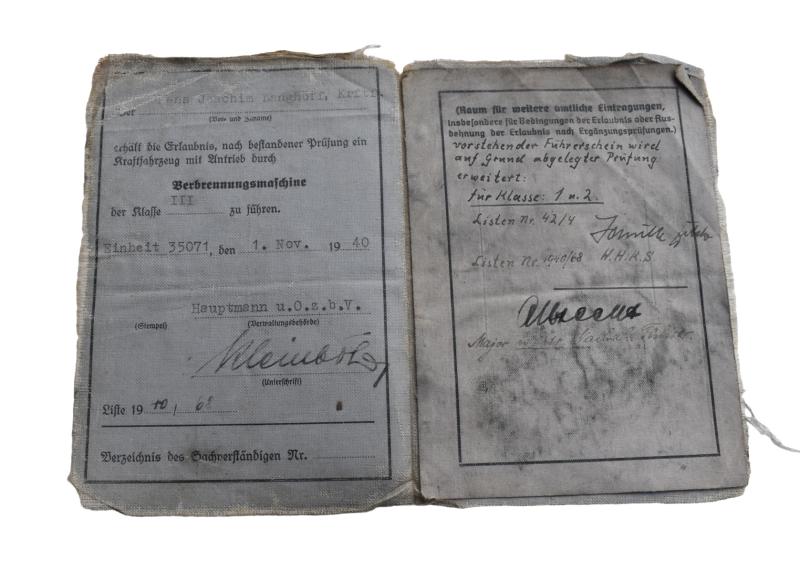 Der Hans Joachim Langhoff, Krftf.
(Vor- und Zuname)
erhält die Erlaubnis, nach bestandener Prüfung ein
Kraftfahrzeug mit Antrieb durch
Verbrennungsmaschine
der Klasse III zu führen.
Einheit 35071, den 1. Nov. 1940
Hauptmann u.O.z.b.V.
(Stempel) (Verwaltungsbehörde)
(Unterschrift)
Liste 1940/ 68
Verzeichnis des Sachverständigen Nr.
(Raum für weitere amtliche Eintragungen,
insbesondere für Bedingungen der Erlaubnis oder Aus-
dehnung der Erlaubnis nach Ergänzungsprüfungen.)
vorstehender Führerschein wird
auf Grund abgelegter Prüfung
erweitert:
für Klasse: 1 u. 2.
Listen Nr. 42/4
Listen Nr. 1940/68
Major